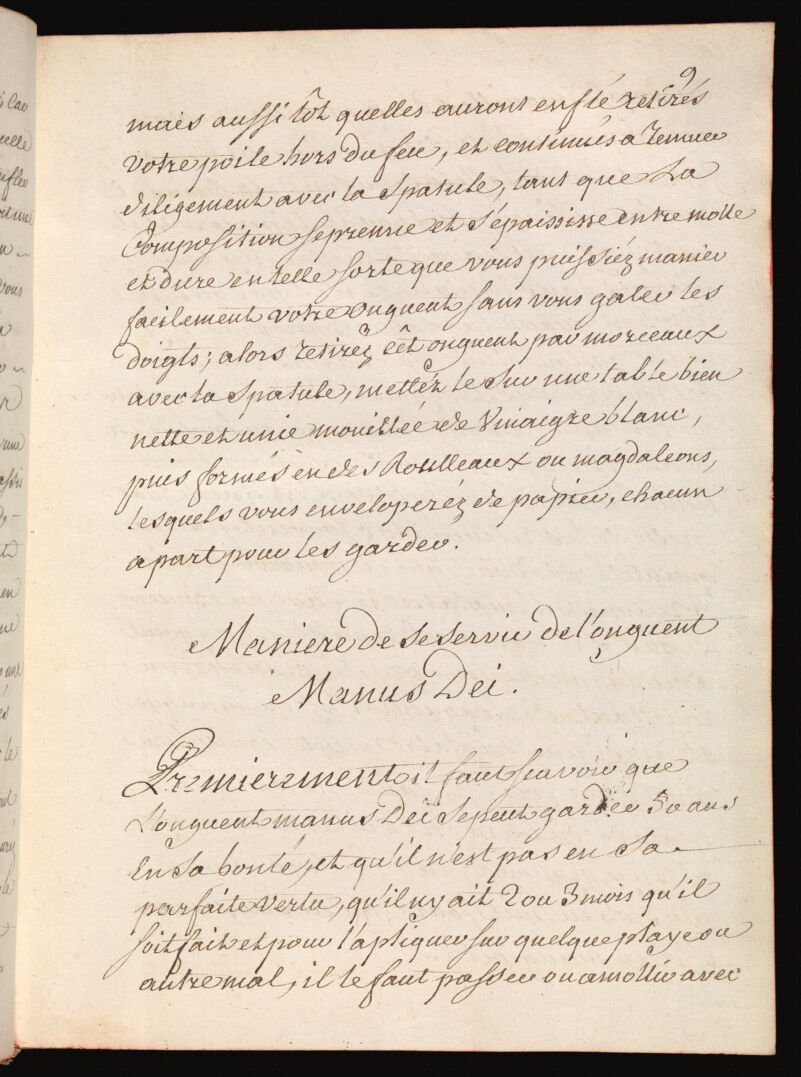 9
mais aussi tôt quelles auront enflé retirés
votre poile hors du feu, et continués a remuer
diligement avec la spatule, tant que la
Composition se prenne et s'épaississe entre molle
et dure en telle sorte que vous puissiéz manier
facilement votre onguent sans vous gater les
doigts; alors retirez cêt onguent par morceaux
avec la spatule, mettéz le sur une table bien
nette et unie mouillée de Vinaigre blanc,
puis formés en des Roulleaux ou magdaleons,
lesquels vous enveloperéz de papier, chacun
a part pour les garder.
Maniere de se servir de l'onguent
Manus Dei.
Premierement il faut sçavoir que
L'onguent manus Dei se peut garder 50 ans
En sa bonté, et qu'il n'est pas en sa
parfaite vertu, qu'il ny ait 2 ou 3 mois qu'il
soit fait et pour l'apliquer sur quelque playe ou
autre mal, il le faut passer ou amollir avec